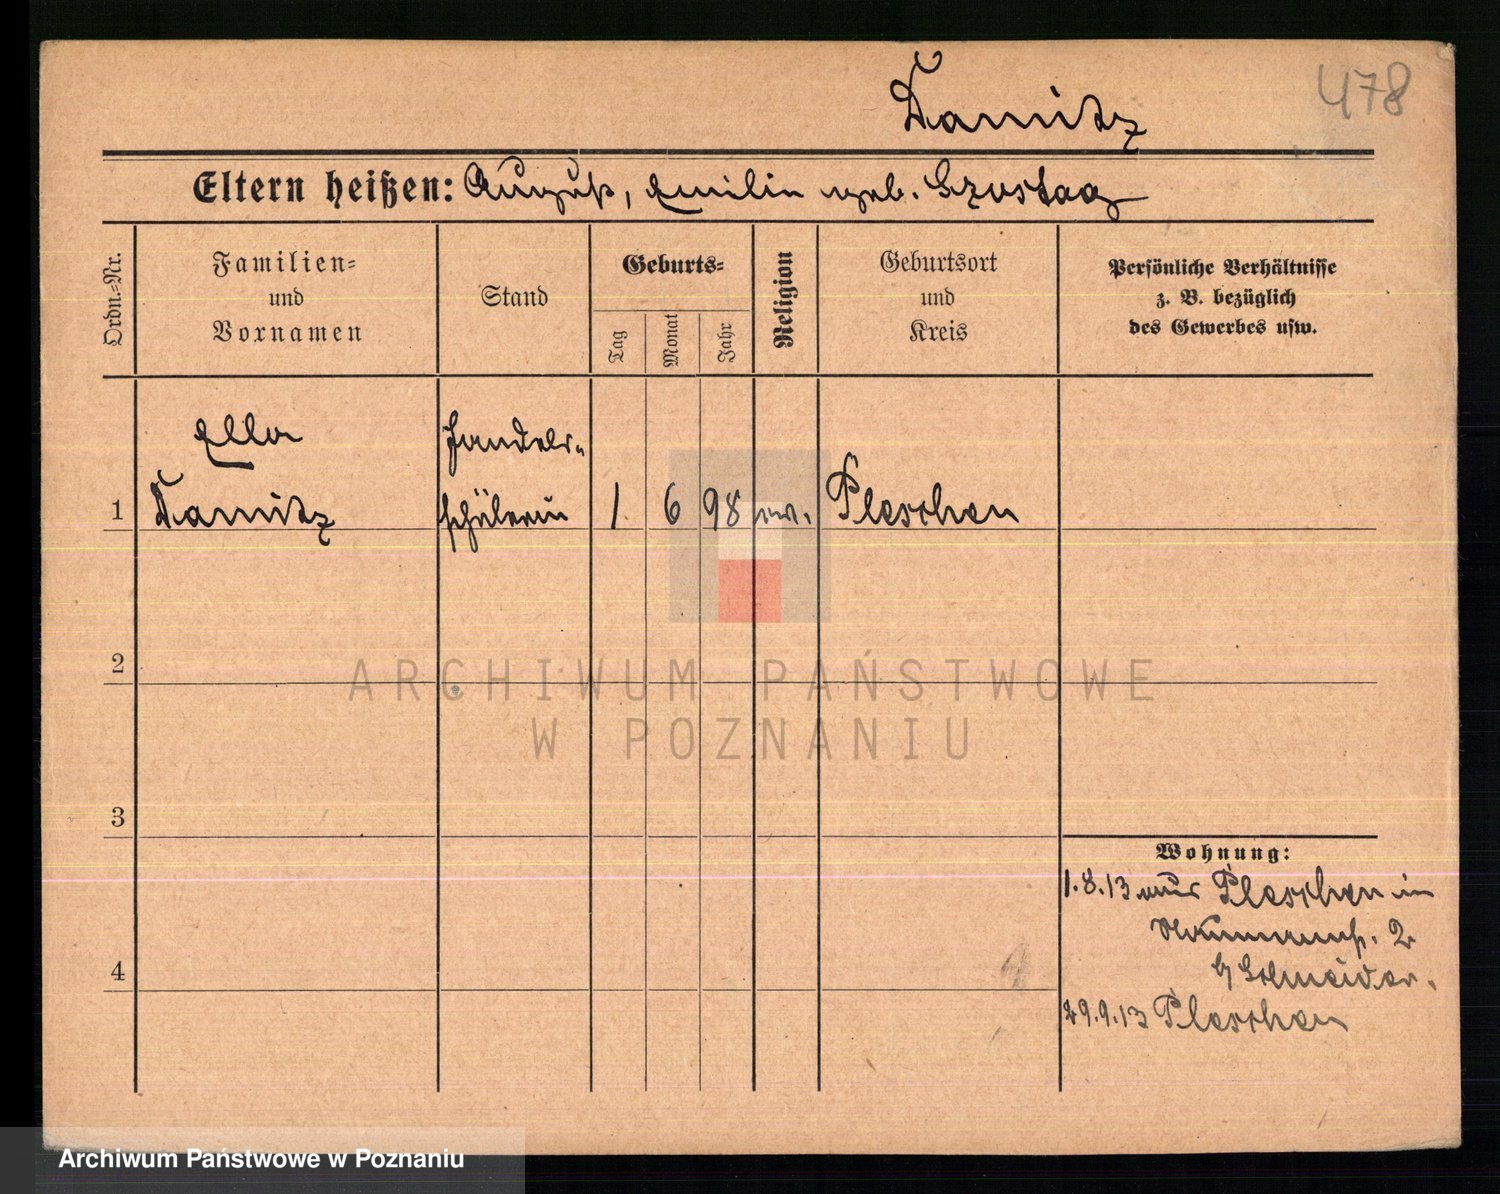 478
Damitz
Eltern heißen: August, Emilie geb. Szostag
Ordn.-Nr.
Familien-
und
Vornamen
Stand
Geburts-
Tag
Monat
Jahr
Religion
Geburtsort
und
Kreis
Persönliche Verhältnisse
z. B. bezüglich
des Gewerbes usw.
Ella
Handels-
1 Damitz schülerin 1. 6 98 ev. Pleschen
2
ARCHIWUM PAŃSTWOWE
W POZNANIU
3
Wohnung:
1.8.13 aus Pleschen in
2
b/ Schneider.
4
29.9.13 Pleschen
Archiwum Państwowe w Poznaniu